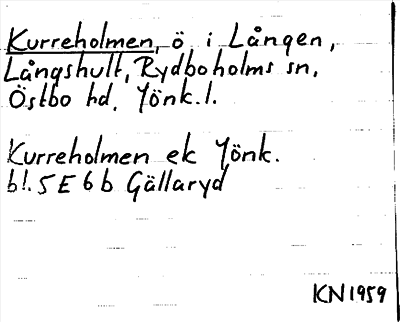 Kurreholmen, ö i Lången,
Långshult, Rydboholms sn,
Östbo hd, Jönk. l.
Kurreholmen ek Jönk.
bl. 5E6b Gällaryd
KN1959